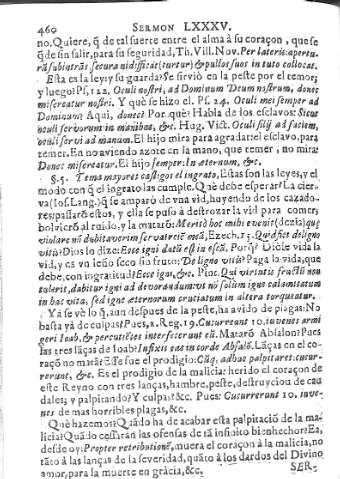 460 SERMON LXXXV.
no. Quiere, q̃ do tal suerte entre el alma à su coraçon, que se
q̃ de sin salir, para su seguridad, Th. Vill. Nov. Per lateris apertu-
rã subintrãs secura nidificat (turtur) & pullos suos in tuto collocat.
Esta es la ley; y su guarda? Se sirviò en la peste por el temor;
y luego? Ps. 122. Oculi nostri, ad Dominum Deum nostrum, donec
misereatur nostri. Y què se hizo el Ps. 24. Oculi mei semper ad
Dominum? Aqui, donec? Por què? Habla de los esclavos: Sicut
oculi servorum in manibus, &c. Hug. Vict. Oculi filij ad faciem,
oculi servi ad manum. El hijo mira para agradar: el esclavo, para
temer. En no aviendo azote en la mano, que temer, no mira:
Donec misereatur. El hijo semper: In aeternum, &c.
§. 5. Tema mayores castigos el ingrato, Estas son las leyes, y el
modo con q̃ el ingrato las cumple. Què debe esperar? La cier-
va (Ios. Lang.) q̃ se amparò de una vid, huyendo de los cazado-
res: passarõ estos, y ella se puso à destrozar la vid para comer;
bolvierõ al ruido, y la matarõ: Meritò hoc mihi evenit (dezia) quę
violare nõ dubitaverim servatricẽ meã, Ezech. 15. Quid fiet de ligno
vitis? Dios lo dize: Ecce igni datũ est in escã. Porq̃? Diòle vida la
vid, y es vn leño seco sin fruto: De ligno vitis? Paga la vida, que
debe, con ingratitud? Ecce igni, &c. Pinc. Qui virtutis fructũ non
tulerit, dabitur igni ad devorandum: vt nõ solùm igne calamitatum
in hac vita, sed igne aeternorum cruciatum in altera torqueatur.
Ya se vè lo q̃, aun despues de la peste, ha avido de plagas: No
basta yà de culpas? Pues, 2. Reg. 19. Cucurrerunt 10. iuvenes armi
geri Ioab, & percutientes interfecerunt eũ. Matarõ Absalon? Pues
las tres lãças de Ioab? Infixit eas in corde Absalõ. Lãças en el co-
raçõ no matã? Esse fue el prodigio: Cũq; adhuc palpitaret: cucur-
rerunt, &c. Es el prodigio de la malicia: herido el coraçon de
este Reyno con tres lanças, hambre, peste, destruycion de cau
dales; y palpitando? Y culpas? &c. Pues: Cucurrerunt 10. iuve-
nes de mas horribles plagas, &c.
Què hazemos? Quãdo ha de acabar esta palpitaciõ de la ma-
licia? Quãdo cessarãn las ofensas de tã infinito bienhechor? Ea,
desde oy: Propter retributionẽ, muera el coraçõ à la malicia, no
tãto à las lanças de la severidad, quãto à los dardos del Divino
amor, para la muerte en gràcia, &c.
SER-